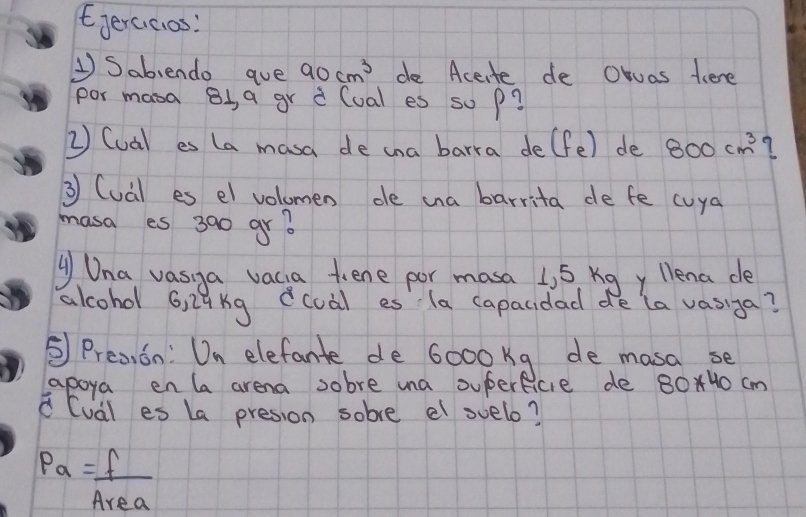 Ejercicios:
1) Sabiendo que 90 cm³ de Aceite de Olivas tiene
por masa 81,9 gr ¿ Cual es su ρ?
2) Cuál es la masa de una barra de (fe) de 800 cm³?
3) Cuál es el volumen de una barrita de fe cuya
masa es 390 gr?
4) Una vasija vacia tiene por masa 1,5 Kg y llena de
alcohol 6,24 Kg ¿cuál es la capacidad de la vasija?
5) Presión: Un elefante de 6000 Kg de masa se
apoya en la arena sobre una superficie de 80*40 cm
¿ Cuál es la presion sobre el suelo?
Pa = f
Area